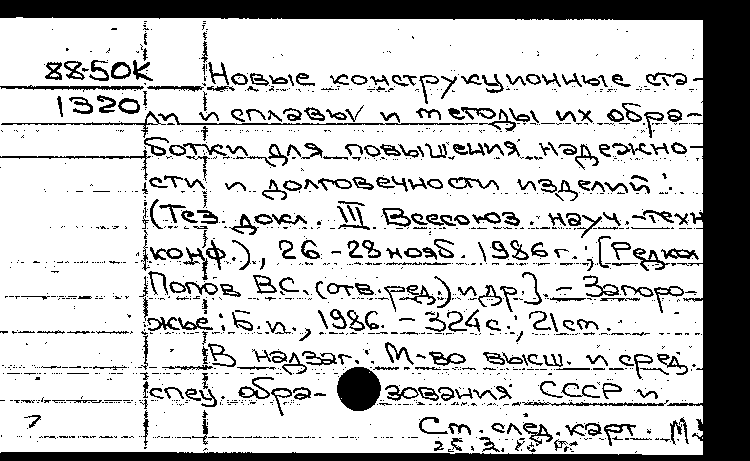 88-50К Новые конструкционные ста-
1320 ли и сплавы и методы их обра-
ботки для повышения надежно-
сти и долговечности изделий :
(Тез. докл. III Всесоюз. науч.-техн
конф.), 26-28 нояб. 1986 г.; [Редкол
Попов В.С. (отв. ред.) и др.]. - Запоро-
жье : Б.и., 1986. - 324 с.; 21 см.
В надзаг.: М-во высш. и сред.
спец. обра- зования СССР и
7 См. след. карт. М.